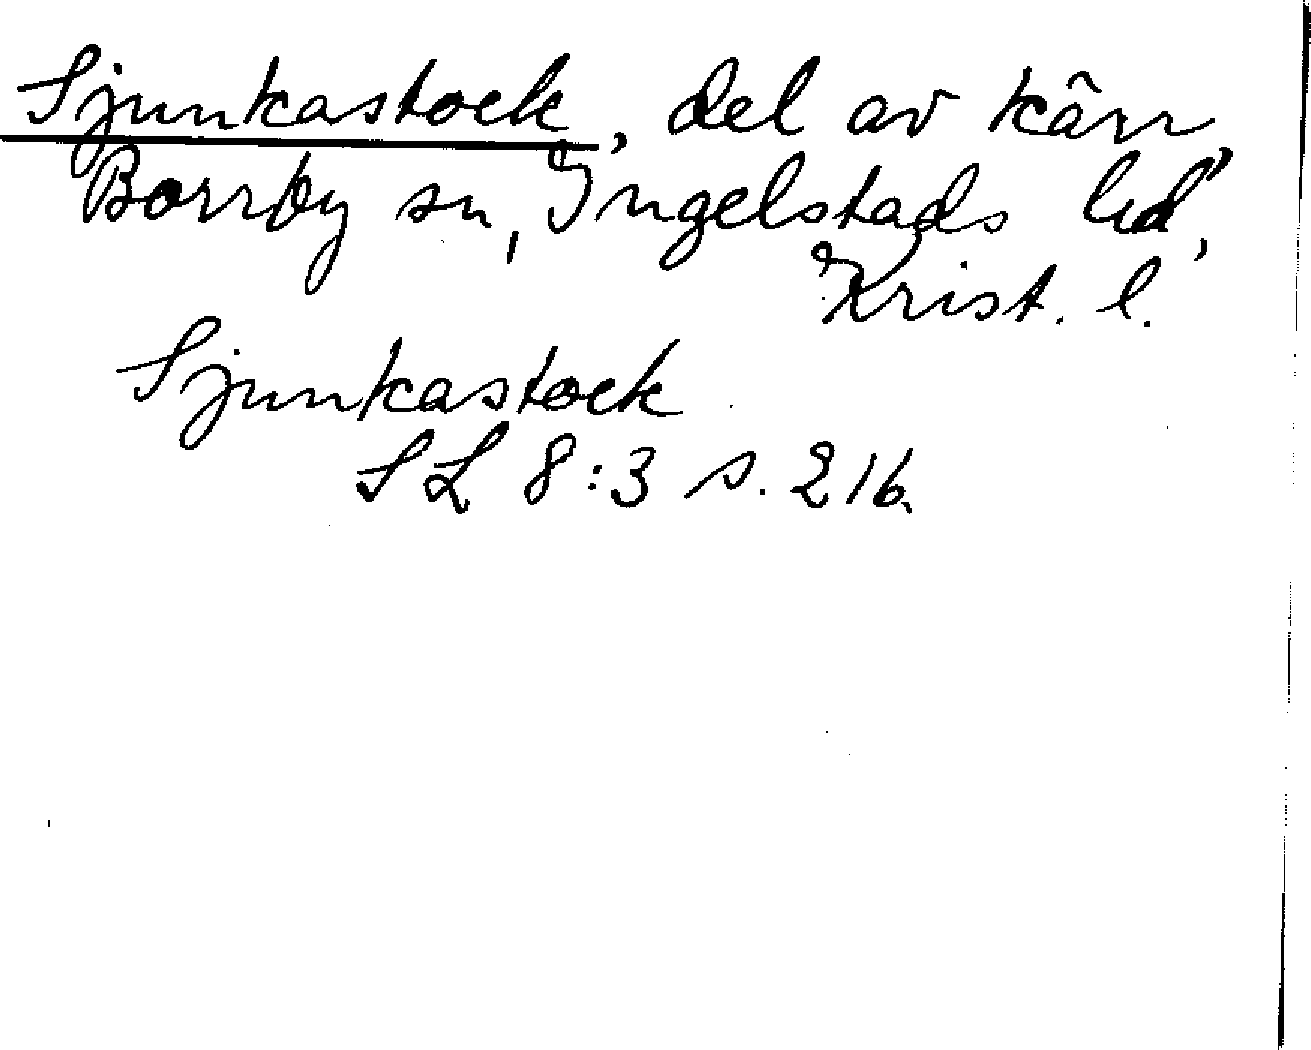 Sjunkastock, del av kärr,
Borrby sn, Ingelstads hd,
Krist. l.
Sjunkastock
SL 8:3 s. 216.